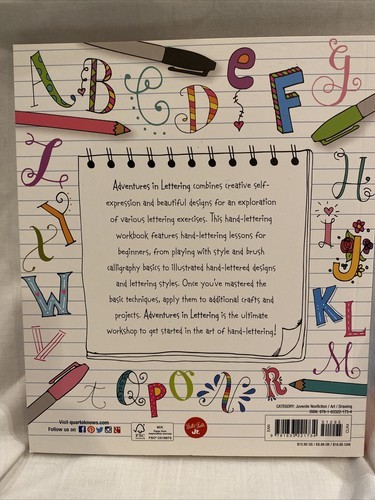 A B C D e F G
Z
H
Adventures in Lettering combines creative self-
expression and beautiful designs for an exploration
of various lettering exercises. This hand-lettering
workbook features hand-lettering lessons for
beginners, from playing with style and brush
calligraphy basics to illustrated hand-lettered designs
and lettering styles. Once you've mastered the
basic techniques, apply them to additional crafts and
projects. Adventures in Lettering is the ultimate
workshop to get started in the art of hand-lettering!
Y
i
X
J
W
K L
V
M
t
Q P O N R
Visit quartoknows.com
Follow us on
MIX
FSC
Jr.
CATEGORY: Juvenile Nonfiction / Art / Drawing